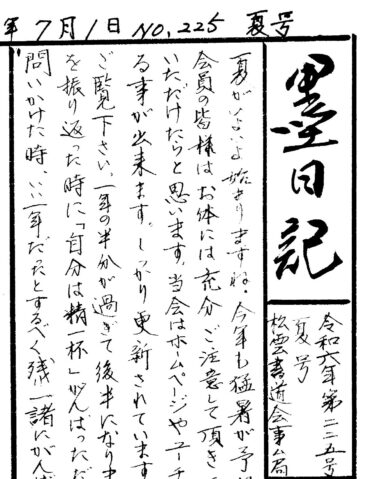 年7月1日 NO.225 夏号
墨日記
令和六年第二二五号
夏号
松雲書道会事ム局
夏がいよいよ始まりますね。今年も猛暑が予
会員の皆様はお体には充分ご注意して頂き
いただけたらと思います。当会はホームページやユーチ
る事が出来ます。しっかり更新されています
ご覧下さい。一年の半分が過ぎて後半になりま
を振り返った時に「自分は精一杯」がんばっただ
問いかけた時、いい一年だったとするべく残一諸にがんば